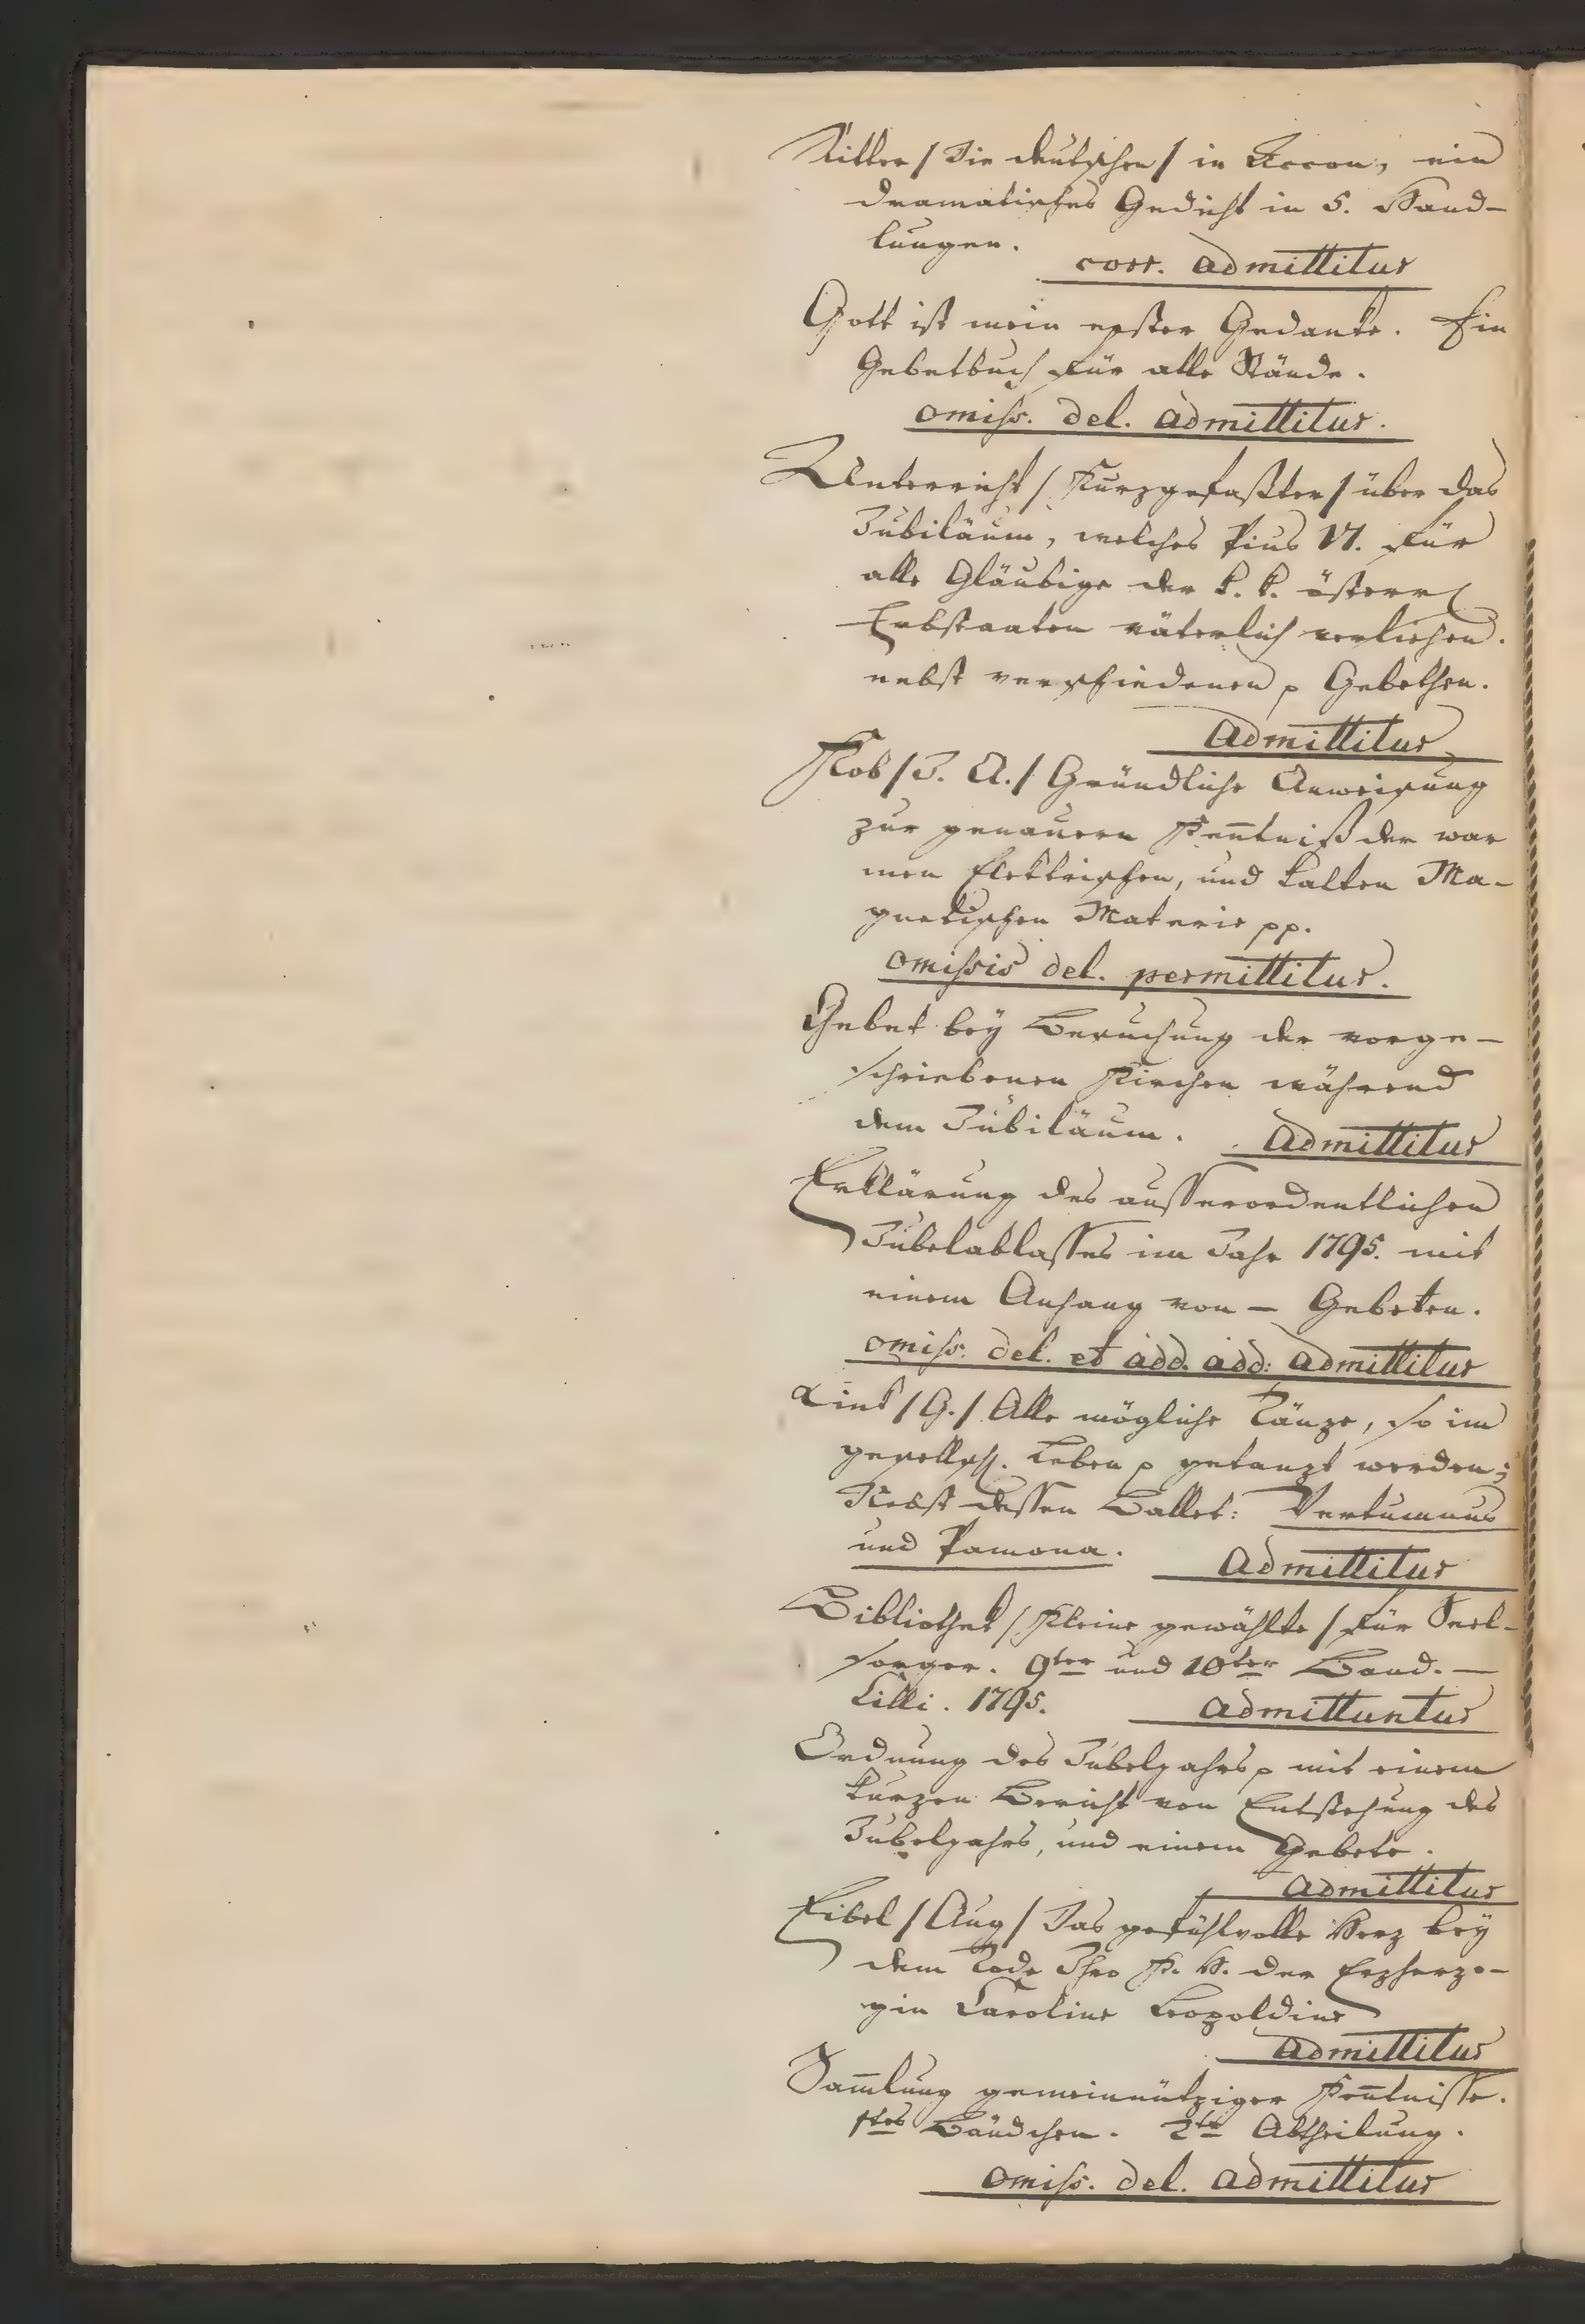 Ritter / Die deutschen / in Accon, ein
dramatisches Gedicht in 5. Hand-
lungen.
corr. admittitur
Gott ist mein erster Gedanke. Ein
Gebetbuch für alle Stände.
omiss. del. admittitur.
Unterricht / Kurzgefaßter / über das
Jubiläum, welches Pius VI. für
alle Gläubige der k. k. österr
Erbstaaten väterlich verliehen.
nebst verschiedenen p Gebethen.
Admittitur
Kob / J. A. / Gründliche Anweisung
zur genauern Keñtniß der war
men Elektrischen, und kalten Ma-
gnetischen Materie pp.
omissis del. permittitur.
Gebet bey Besuchung der vorge-
schriebenen Kirchen während
dem Jubiläum.
Admittitur
Erklärung des ausserordentlichen
Jubelablasses im Jahr 1795. mit
einem Anhang von – Gebeten.
omiss. del. et add. add: admittitur
Link / G. / Alle mögliche Tänze, so im
gesellsch. Leben p getanzt werden;
Nebst dessen Ballet: Vertumnus
und Pamona.
Admittitur
Bibliothek / Kleine gewählte / für Seel-
sorger. 9ter und 10ter Band. –
Cilli. 1795.
admittuntur
Ordnung des Jubeljahrs p mit einem
kurzen Bericht von Entstehung des
Jubeljahrs, und einem Gebete.
admittitur
Eibel / Aug / Das gefühlvolle Herz bey
dem Tode Ihro K. H. der Erzherzo-
gin Caroline Leopoldine
admittitur
Sam̄lung gemeinnütziger Keñtnisse.
1tes Bändchen. 2te Abtheilung.
omiss. del. admittitur